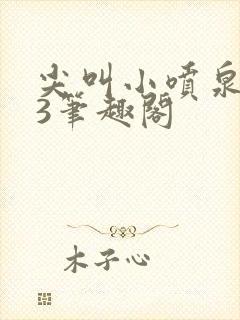 尖叫小喷泉
3筆趣閣
木子心